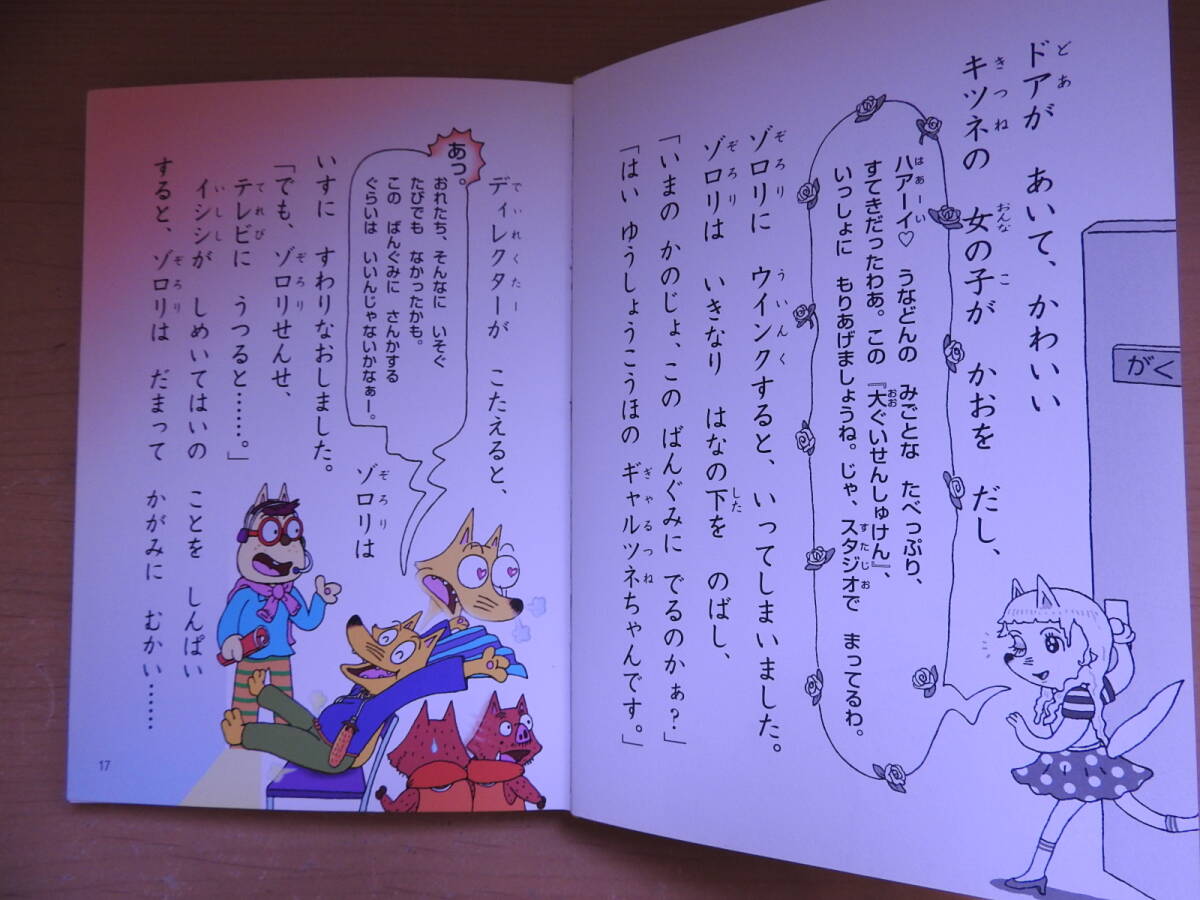 ドアが あいて、かわいい
キツネの 女の子が かおを だし、
ハアーイ♡ うなどんの みごとな たべっぷり、
すてきだったわあ。この 『大ぐいせんしゅけん』、
いっしょに もりあげましょうね。じゃ、スタジオで まってるわ。
ゾロリに ウインクすると、いってしまいました。
ゾロリは いきなり はなの下を のばし、
「いまの かのじょ、この ばんぐみに でるのかぁ?」
「はい ゆうしょうこうほの ギャルツネちゃんです。」
がく
ディレクターが こたえると、
あっ。
おれたち、そんなに いそぐ
たびでも なかったかも。
この ばんぐみに さんかする
ぐらいは いいんじゃないかなぁー。
ゾロリは
いすに すわりなおしました。
「でも、ゾロリせんせ、
テレビに うつると……。」
イシシが しめいてはいの ことを しんぱい
すると、ゾロリは だまって かがみに むかい……
17